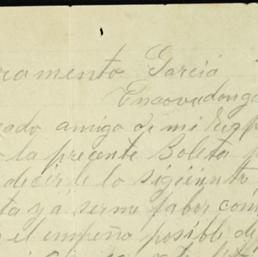 ramento Garcia
Encovadonga
ado amigo de mi
o la presente Boleta
decirle lo sigiiento
ta ya serme fabor con
el empeño posible de